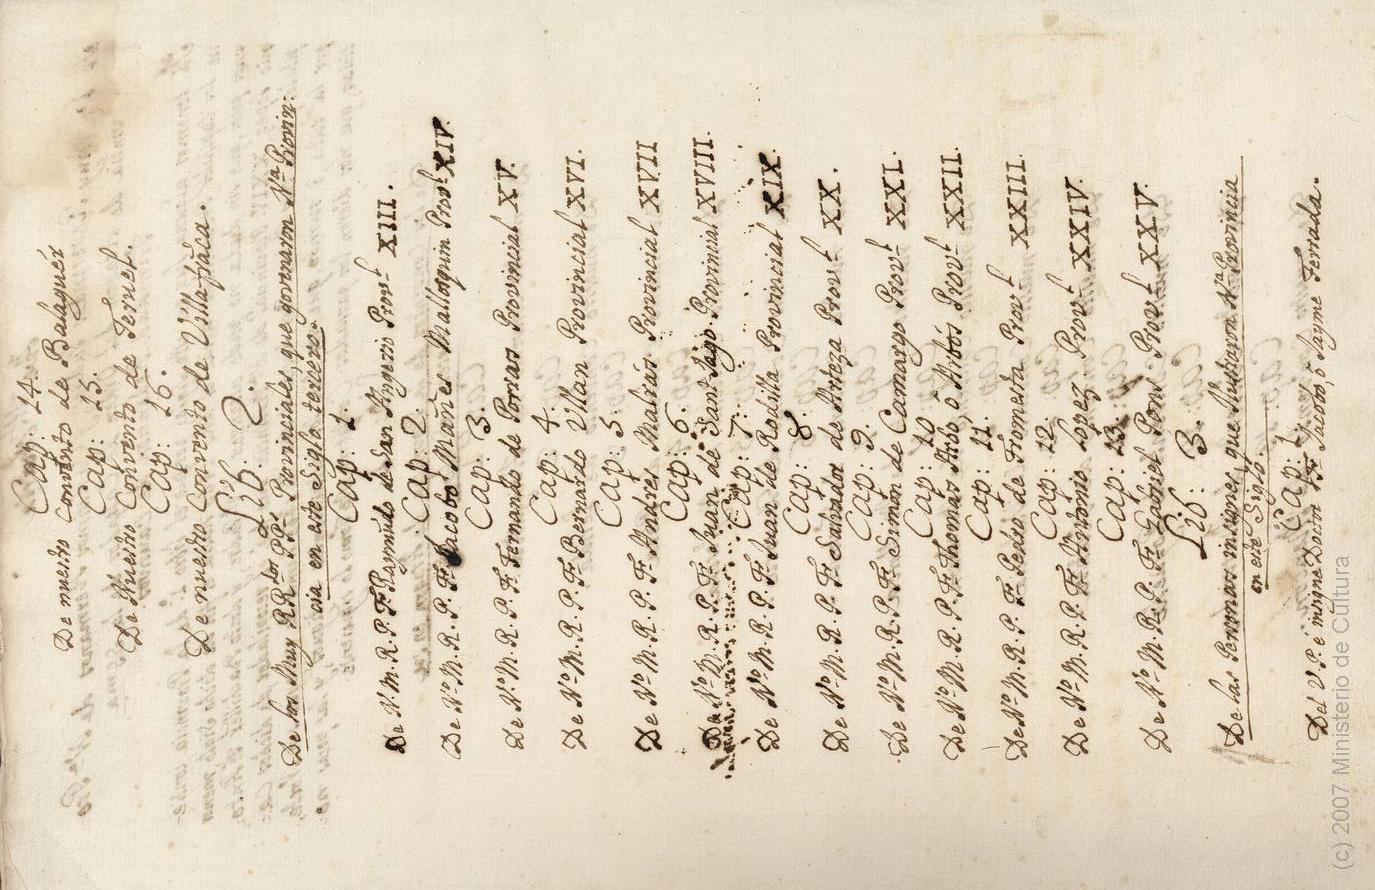 Cap: 14.
De nuestro Convento de Balaguer
Cap: 15.
De Nuestro Convento de Teruel.
Cap: 16.
De nuestro Convento de Villa-franca.
Lib: 2.
De los Muy RR.dos PP.s Provinciales, que governaron N.ra Provin:
cia en este Siglo tercero.
Cap: 1.
De N. M. R. P. Fr. Raymúdo de San Prov.l XIII.
Cap: 2.
De N.o M. R. P. Fr. Jacobo Mañes Mallorquin Prov.l XIV.
Cap: 3.
De N.o M. R. P. Fr. Fernando de Porras Provincial XV.
Cap: 4.
De N.o M. R. P. Fr. Bernardo Ullan Provincial XVI.
Cap: 5.
De N.o M. R. P. Fr. Andres Malrás Provincial XVII
Cap: 6.
De N.o M. R. P. Fr. Juan de Sant-Iago Provincial XVIII.
Cap: 7.
De N.o M. R. P. F. Juan de Rodilla Provincial XIX.
Cap: 8.
De N.o M. R. P. Fr. Salvador de Arteza Prov.l XX.
Cap: 9.
De N.o M. R. P. Fr. Simon de Camargo Prov.l XXI.
Cap: 10
De N.o M. R. P. Fr. Thomas Arbo, ó Arbós Prov.l XXII.
Cap: 11.
De N.o M. R. P. Fr. Pedro de Fomesta Prov.l XXIII.
Cap: 12.
De N.o M. R. P. Fr. Antonio Lopez Prov.l XXIV.
Cap: 13.
De N.o M. R. P. Fr. Gabriel Pont Prov.l XXV.
Lib: 3.
De las Personas insignes, que illustraron N.ra Provincia
en este Siglo.
Cap. 1.
Del V. P. é insigne Doctor Fr. Jacobo, ò Jayme Terrada.
(c) 2007 Ministerio de Cultura